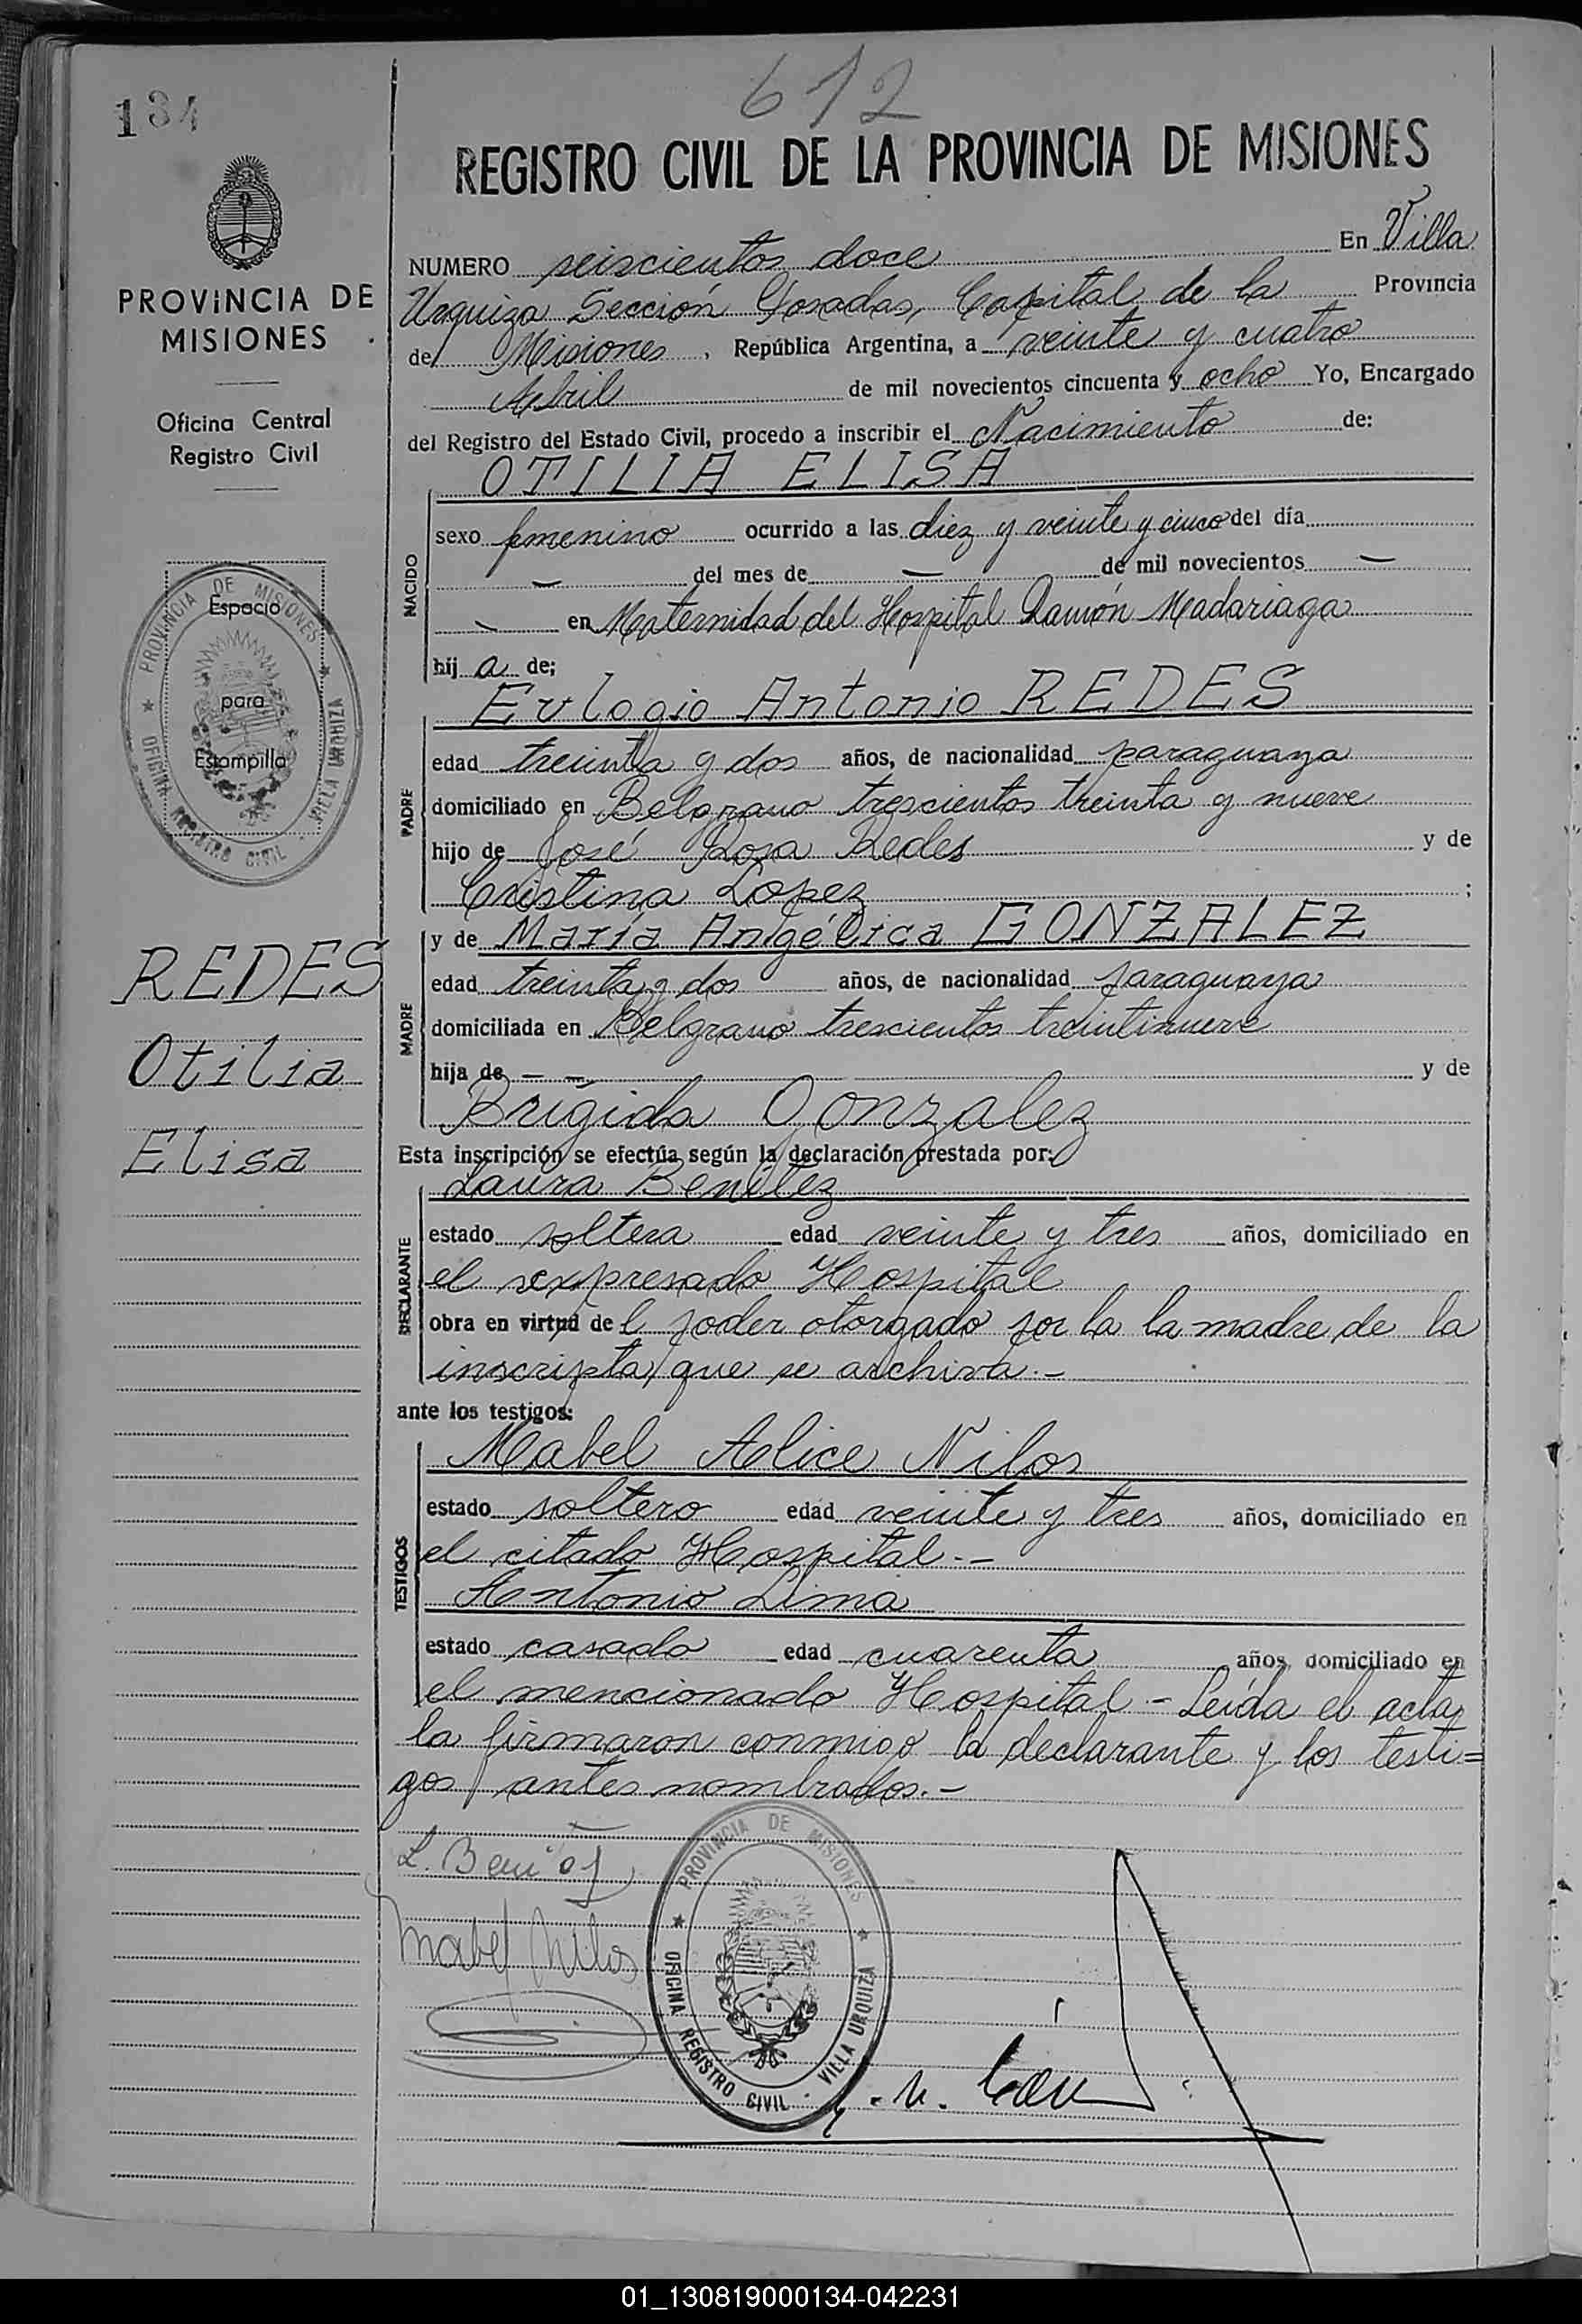 612
134
REGISTRO CIVIL DE LA PROVINCIA DE MISIONES
PROVINCIA DE
MISIONES
Oficina Central
Registro Civil
PROVINCIA DE MISIONES
OFICINA REGISTRO CIVIL - VILLA URQUIZA
Espacio
para
Estampilla
REDES
Otilia
Elisa
NUMERO seiscientos doce En Villa
Urquiza Sección Posadas, Capital de la Provincia
de Misiones, República Argentina, a veinte y cuatro
Abril de mil novecientos cincuenta y ocho Yo, Encargado
del Registro del Estado Civil, procedo a inscribir el Nacimiento de:
OTILIA ELISA
NACIDO
sexo femenino ocurrido a las diez y veinte y cinco del día
— del mes de — de mil novecientos —
— en Maternidad del Hospital Ramón Madariaga
hij a de;
Eulogio Antonio REDES
PADRE
edad treinta y dos años, de nacionalidad paraguaya
domiciliado en Belgrano trescientos treinta y nueve
hijo de José Rosa Redes y de
Cristina Lopez ;
MADRE
y de María Angélica GONZALEZ
edad treinta y dos años, de nacionalidad paraguaya
domiciliada en Belgrano trescientos treintinueve
hija de — — y de
Brígida Gonzalez
Esta inscripción se efectúa según la declaración prestada por:
Laura Benitez
DECLARANTE
estado soltera edad veinte y tres años, domiciliado en
el expresado Hospital
obra en virtud del poder otorgado por la la madre de la
inscripta, que se archiva.-
ante los testigos:
Mabel Alice Nilos
TESTIGOS
estado soltero edad veinte y tres años, domiciliado en
el citado Hospital.-
Antonio Lima
estado casado edad cuarenta años, domiciliado en
el mencionado Hospital - Leída el acta,
la firmaron conmigo la declarante y los testi=
gos antes nombrados.-
Mabel Nilos
PROVINCIA DE MISIONES
OFICINA REGISTRO CIVIL - VILLA URQUIZA
01_130819000134-042231